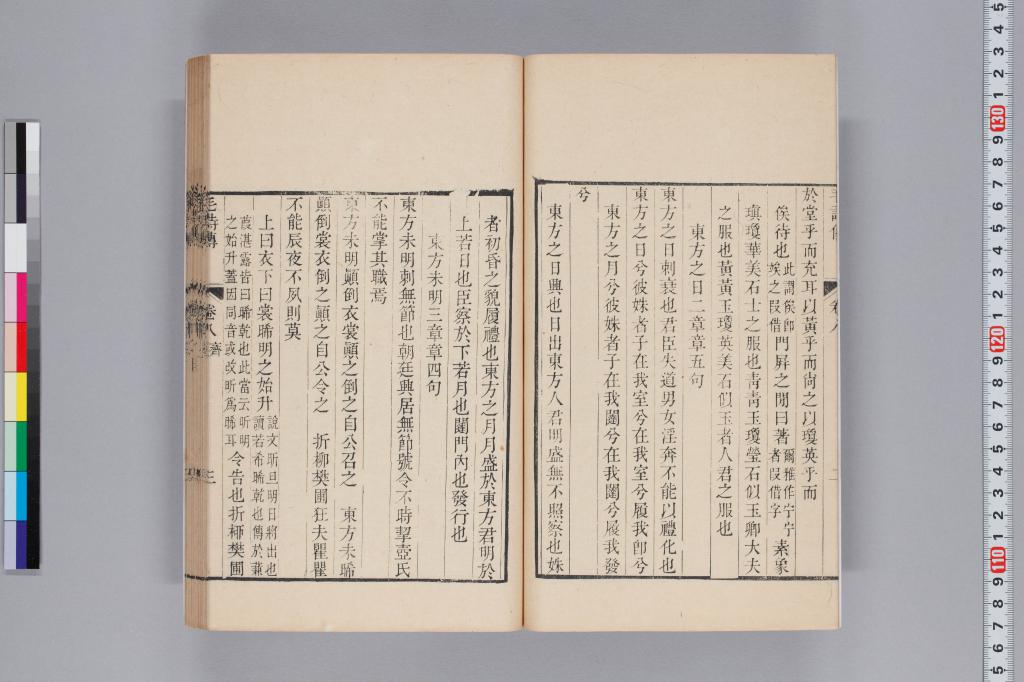 於堂乎而充耳以黃乎而尚之以瓊英乎而
俟待也此謂俟卽竢之叚借門屏之閒曰著爾雅作宁宁者叚借字素象
瑱瓊華美石士之服也靑靑玉瓊瑩石似玉卿大夫
之服也黃黃玉瓊英美石似玉者人君之服也
東方之日二章章五句
東方之日刺衰也君臣失道男女淫奔不能以禮化也
東方之日兮彼姝者子在我室兮在我室兮履我卽兮
東方之月兮彼姝者子在我闥兮在我闥兮履我發
兮
東方之日興也日出東方人君明盛無不照察也姝
者初昏之貌履禮也東方之月月盛於東方君明於
上若日也臣察於下若月也闥門內也發行也
東方未明三章章四句
東方未明刺無節也朝廷興居無節號令不時挈壺氏
不能掌其職焉
東方未明顚倒衣裳顚之倒之自公召之 東方未晞
顚倒裳衣倒之顚之自公令之 折柳樊圃狂夫瞿瞿
不能辰夜不夙則莫
上曰衣下曰裳晞明之始升說文昕旦明日將出也讀若希晞乾也傳於蒹
葭湛露皆曰晞乾也此當云昕明之始升蓋因同音或改昕爲晞耳令告也折柳樊圃
毛詩傳 卷八 齊